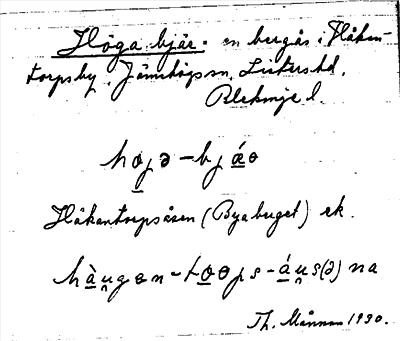 Höga bjär. en bergås i Håkan-
torps by, Jämshögs sn, Listers hd,
Blekinge l.
hoɡə – bjáo
Håkantorpsåsen (Byaberget) ek.
hàu̯gon-toops-áu̯s(ə) na
Th. Månsson 1930.